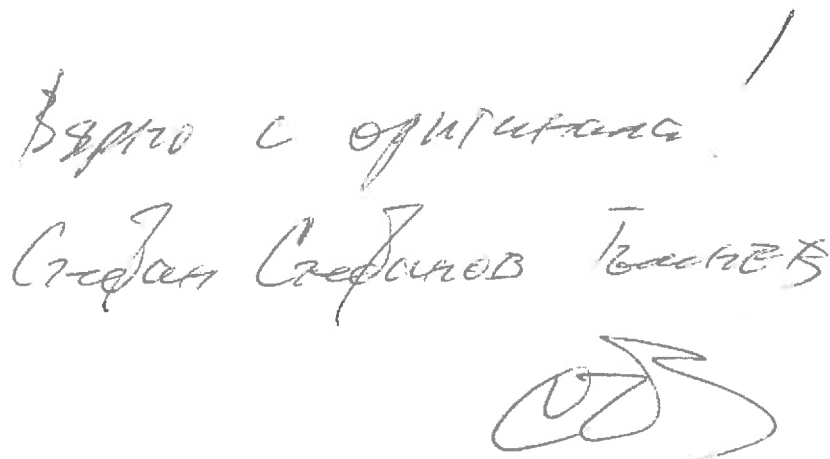 Вярно с оригинала!
Стефан Стефанов